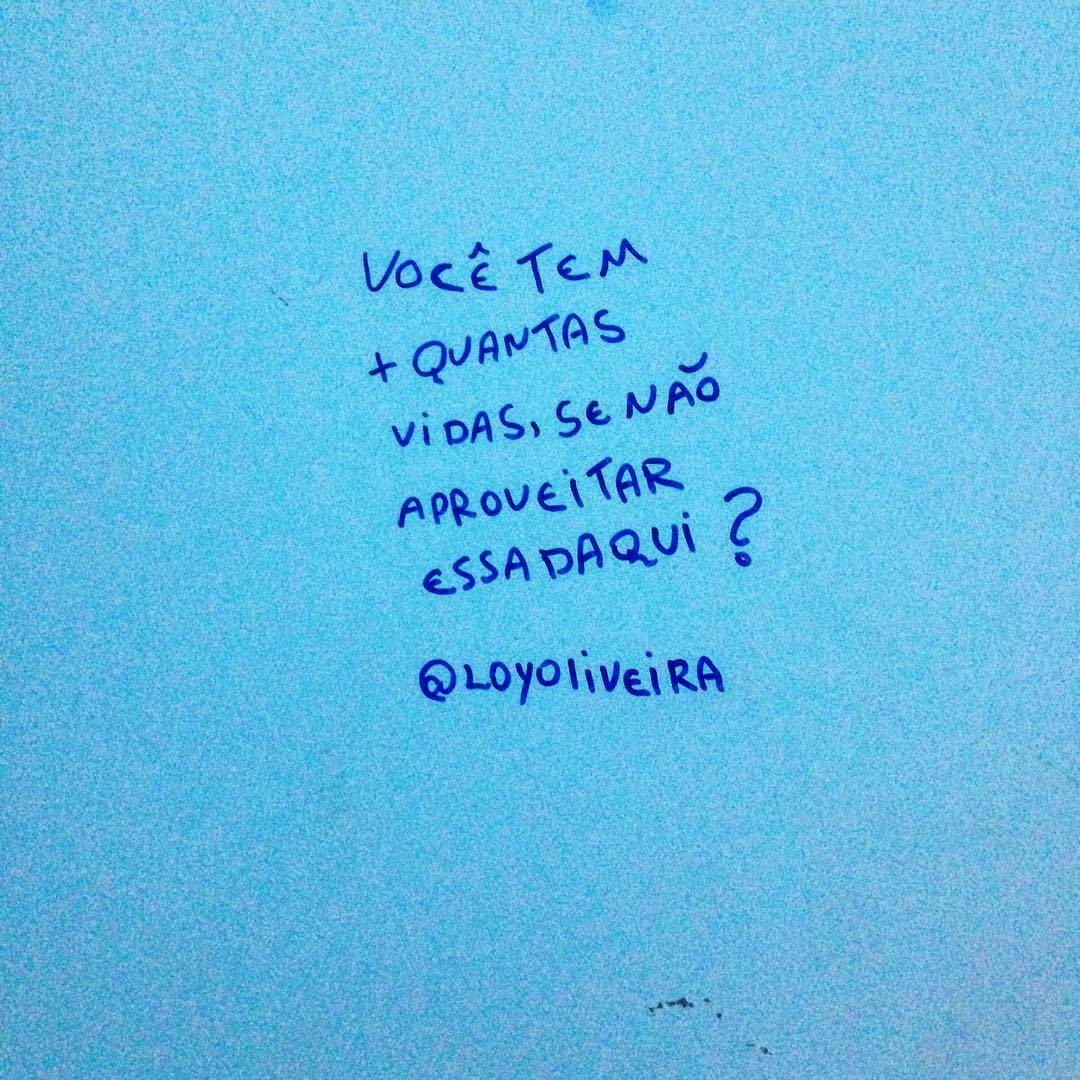 VOCÊ TEM
+ QUANTAS
ViDAS, SE NÃO
APROVEiTAR
ESSA DAQUi ?
@LOYOliVEiRA